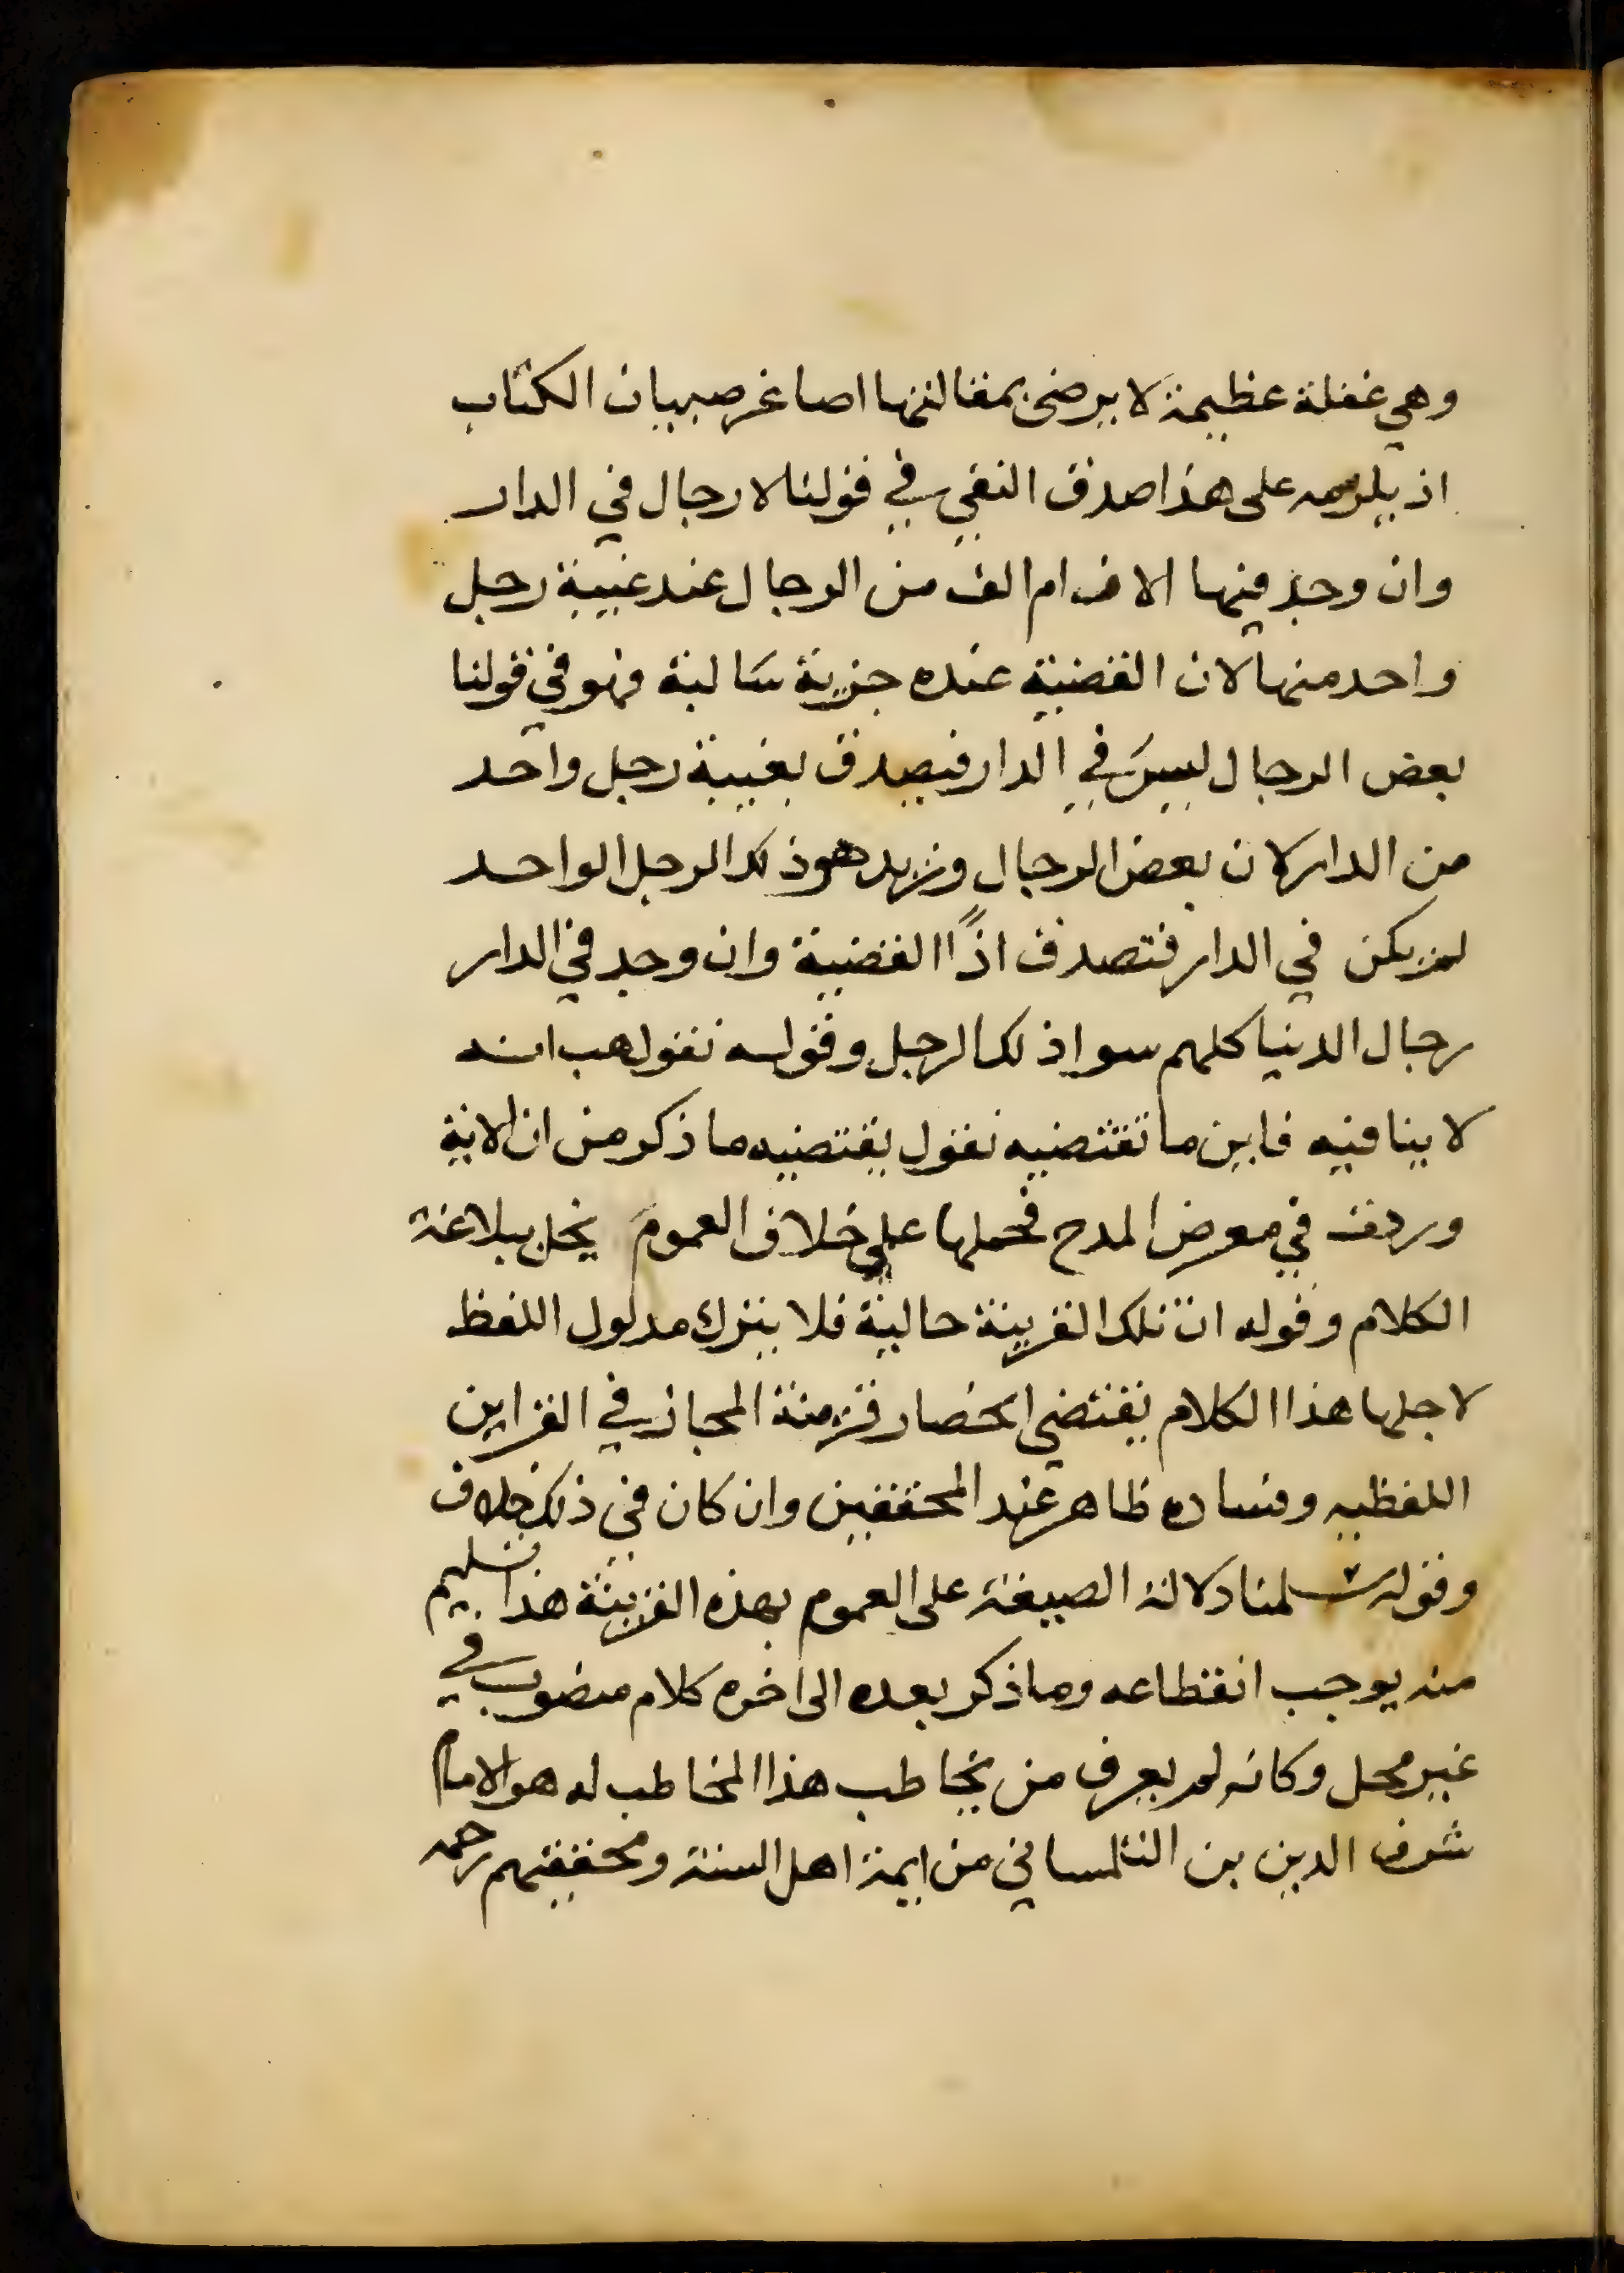 وهي غفلة عظيمة لا يرضى بمقالتها اصاغر صبيان الكتاب
اذ يلزمه على هذا صدق النفي في قولنا لا رجال في الدار
وان وجد فيها الاف الف من الرجال عند غيبة رجل
واحد منها لان القضية عنده جزية سالبة فهو في قولنا
بعض الرجال ليس في الدار فيصدق بغيبة رجل واحد
من الدار لان بعض الرجال ونريد هو ذلك الرجل الواحد
لم يكن في الدار فتصدق اذًا القضية وان وجد في الدار
رجال الدنيا كلهم سوا ذلك الرجل وقوله نقول هب انه
لا ينافيه فاين ما تقتضيه نقول يقتضيه ما ذكر من ان الاية
وردت في معرض المدح فحملها على خلاف العموم يخل ببلاغة
الكلام وقوله ان تلك القرينة حالية فلا يترك مدلول اللفظ
لاجلها هذا الكلام يقتضي انحصار قرينة المجاز في القراين
اللفظيه وفساده ظاهر عند المحققين وان كان في ذلك خلاف
وقوله سلمنا دلالة الصيغة على العموم بهذه القرينة هذا تسليم
منه يوجب انقطاعه وما ذكر بعده الى اخره كلام مضروب في
غير محل وكانه لم يعرف من يخاطب هذا المخاطب له هو الامام
شرف الدين بن التلمساني من ايمة اهل السنة ومحققيهم رحمه